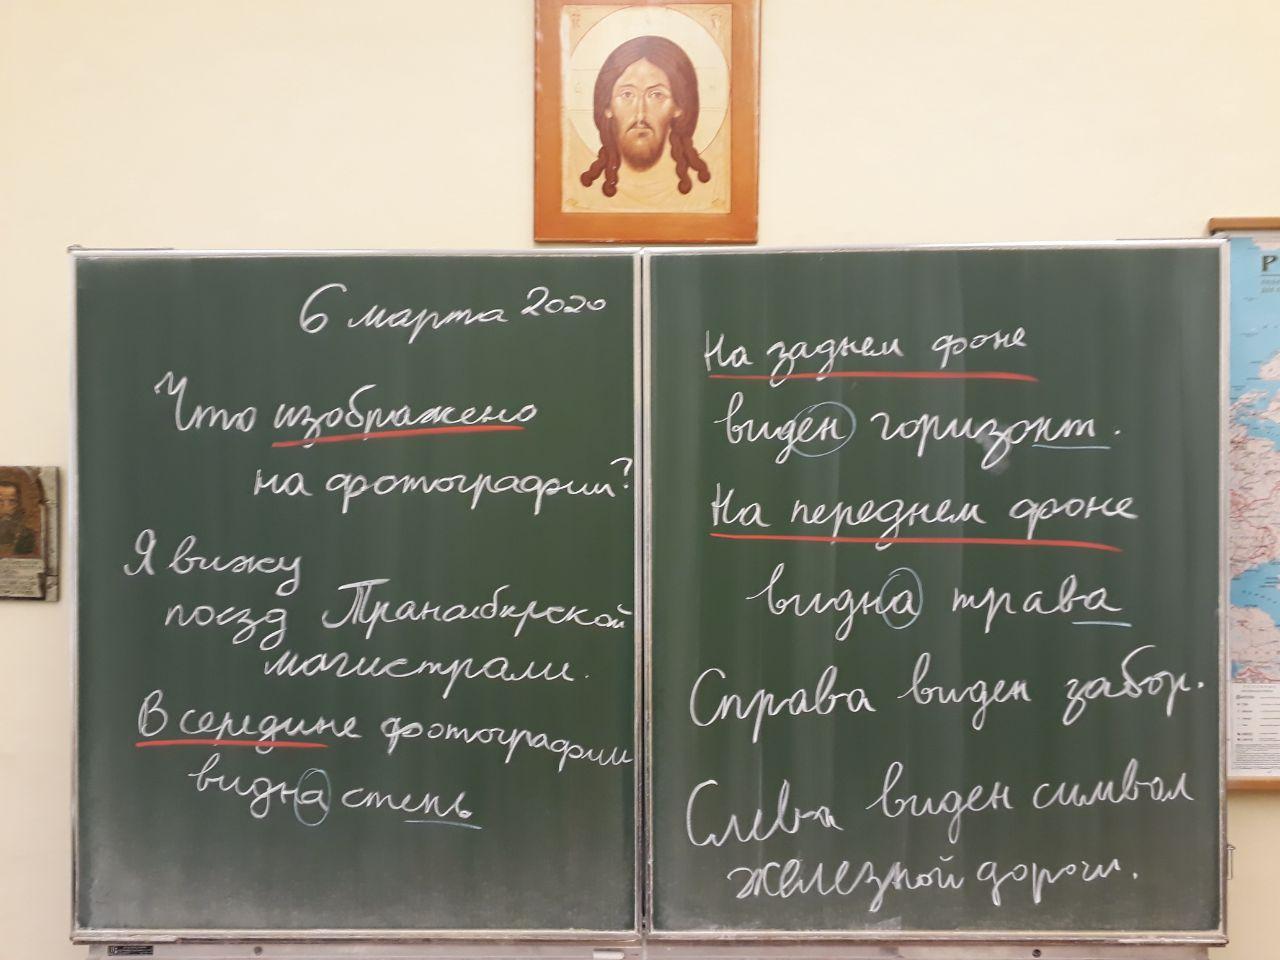 6 марта 2020
Что изображено
на фотографии?
Я вижу
поезд Транссибирской
магистрали.
В середине фотографии
видна степь
На заднем фоне
виден горизонт.
На переднем фоне
видна трава
Справа виден забор.
Слева виден символ
железной дороги.